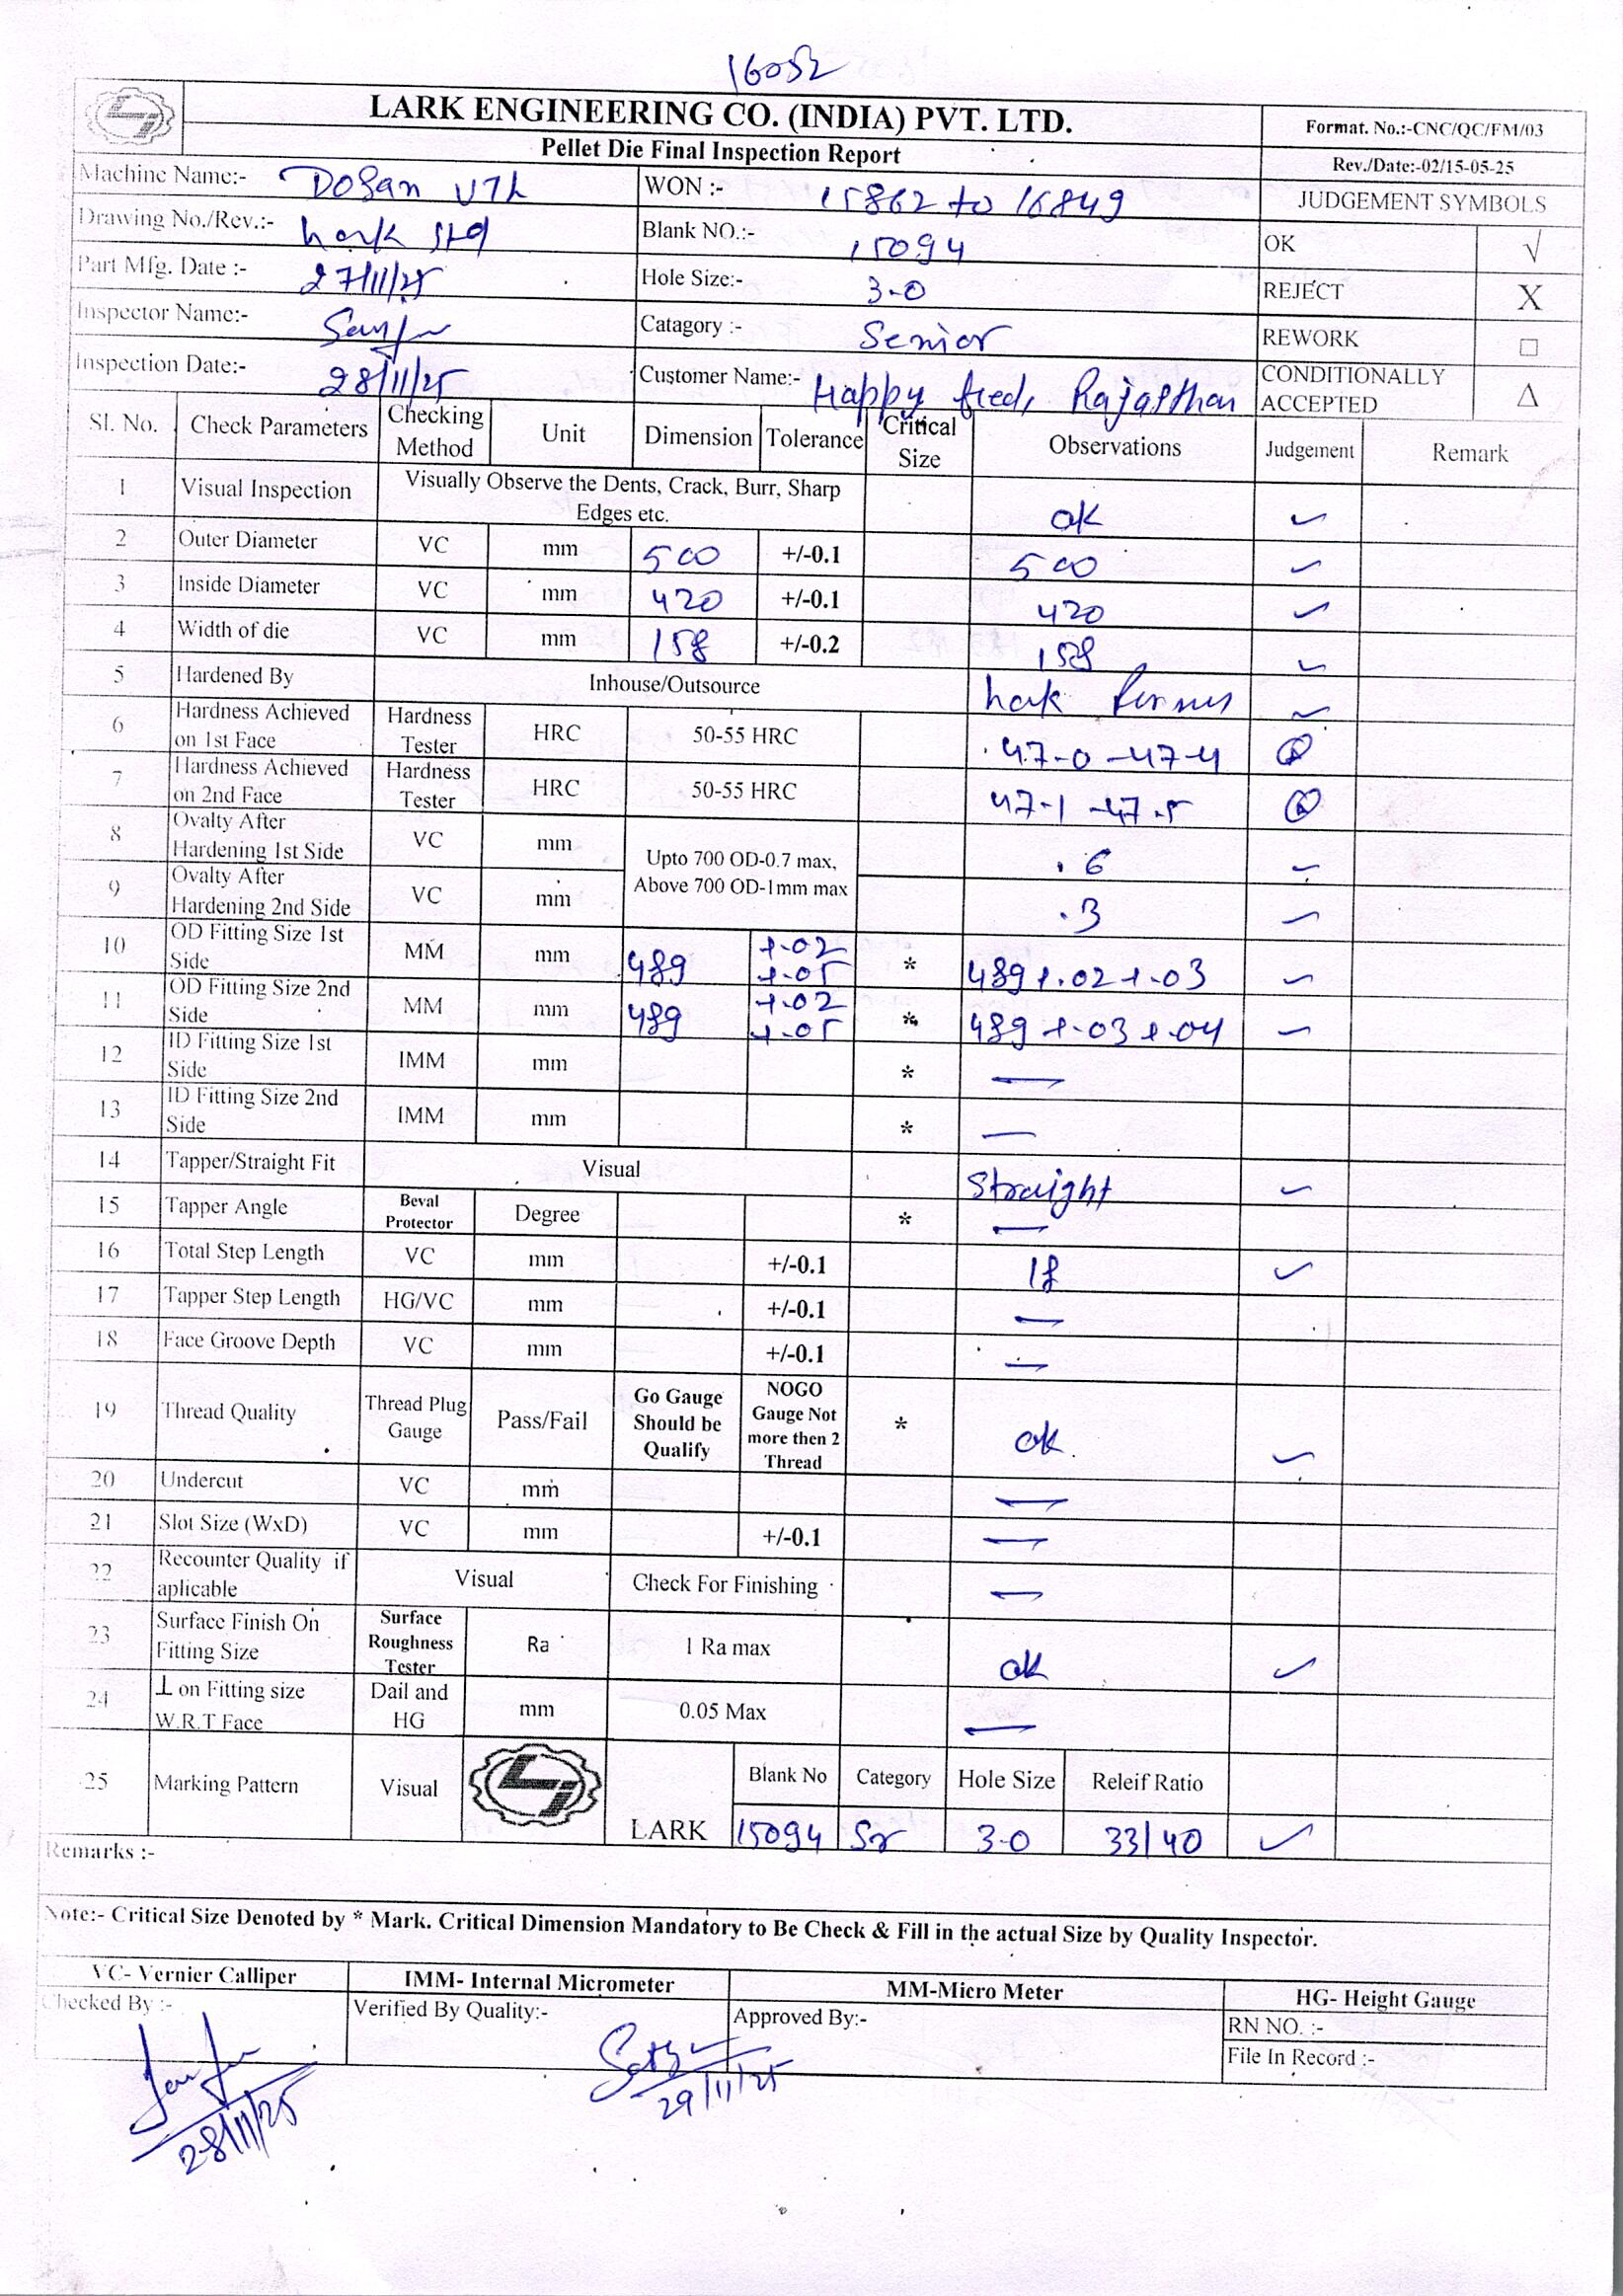 16052
LARK ENGINEERING CO. (INDIA) PVT. LTD.
Pellet Die Final Inspection Report
Format. No.:-CNC/QC/FM/03
Rev./Date:-02/15-05-25
Machine Name:- Dosan VTL WON :- 15862 to 16849 JUDGEMENT SYMBOLS
Drawing No./Rev.:- Lark std Blank NO.:- 15094 OK √
Part Mfg. Date :- 27/11/25 Hole Size:- 3.0 REJECT X
Inspector Name:- Catagory :- Senior REWORK □
Inspection Date:- 28/11/25 Customer Name:- Happy feed, Rajasthan CONDITIONALLY ACCEPTED Δ
Sl. No. Check Parameters Checking Method Unit Dimension Tolerance Critical Size Observations Judgement Remark
1 Visual Inspection Visually Observe the Dents, Crack, Burr, Sharp Edges etc. ok ✓
2 Outer Diameter VC mm 500 +/-0.1 500 ✓
3 Inside Diameter VC mm 420 +/-0.1 420 ✓
4 Width of die VC mm 158 +/-0.2 158 ✓
5 Hardened By Inhouse/Outsource Lark ✓
6 Hardness Achieved on 1st Face Hardness Tester HRC 50-55 HRC 47-0 -47-4
7 Hardness Achieved on 2nd Face Hardness Tester HRC 50-55 HRC 47-1 -47.5
8 Ovalty After Hardening 1st Side VC mm Upto 700 OD-0.7 max, Above 700 OD-1mm max .6 ✓
9 Ovalty After Hardening 2nd Side VC mm .3 ✓
10 OD Fitting Size 1st Side MM mm 489 +.02 +.05 * 489 +.02 +.03 ✓
11 OD Fitting Size 2nd Side MM mm 489 +.02 +.05 * 489 +.03 +.04 ✓
12 ID Fitting Size 1st Side IMM mm * —
13 ID Fitting Size 2nd Side IMM mm * —
14 Tapper/Straight Fit Visual Straight ✓
15 Tapper Angle Beval Protector Degree * —
16 Total Step Length VC mm +/-0.1 ✓
17 Tapper Step Length HG/VC mm +/-0.1 —
18 Face Groove Depth VC mm +/-0.1 —
19 Thread Quality Thread Plug Gauge Pass/Fail Go Gauge Should be Qualify NOGO Gauge Not more then 2 Thread * ok ✓
20 Undercut VC mm —
21 Slot Size (WxD) VC mm +/-0.1 —
22 Recounter Quality if aplicable Visual Check For Finishing —
23 Surface Finish On Fitting Size Surface Roughness Tester Ra 1 Ra max ok ✓
24 ⊥ on Fitting size W.R.T Face Dail and HG mm 0.05 Max —
25 Marking Pattern Visual LARK Blank No Category Hole Size Releif Ratio
15094 Sr 3.0 33/40 ✓
Remarks :-
Note:- Critical Size Denoted by * Mark. Critical Dimension Mandatory to Be Check & Fill in the actual Size by Quality Inspector.
VC- Vernier Calliper IMM- Internal Micrometer MM-Micro Meter HG- Height Gauge
Checked By :- Verified By Quality:- Approved By:- RN NO. :-
File In Record :-
28/11/25 29/11/25